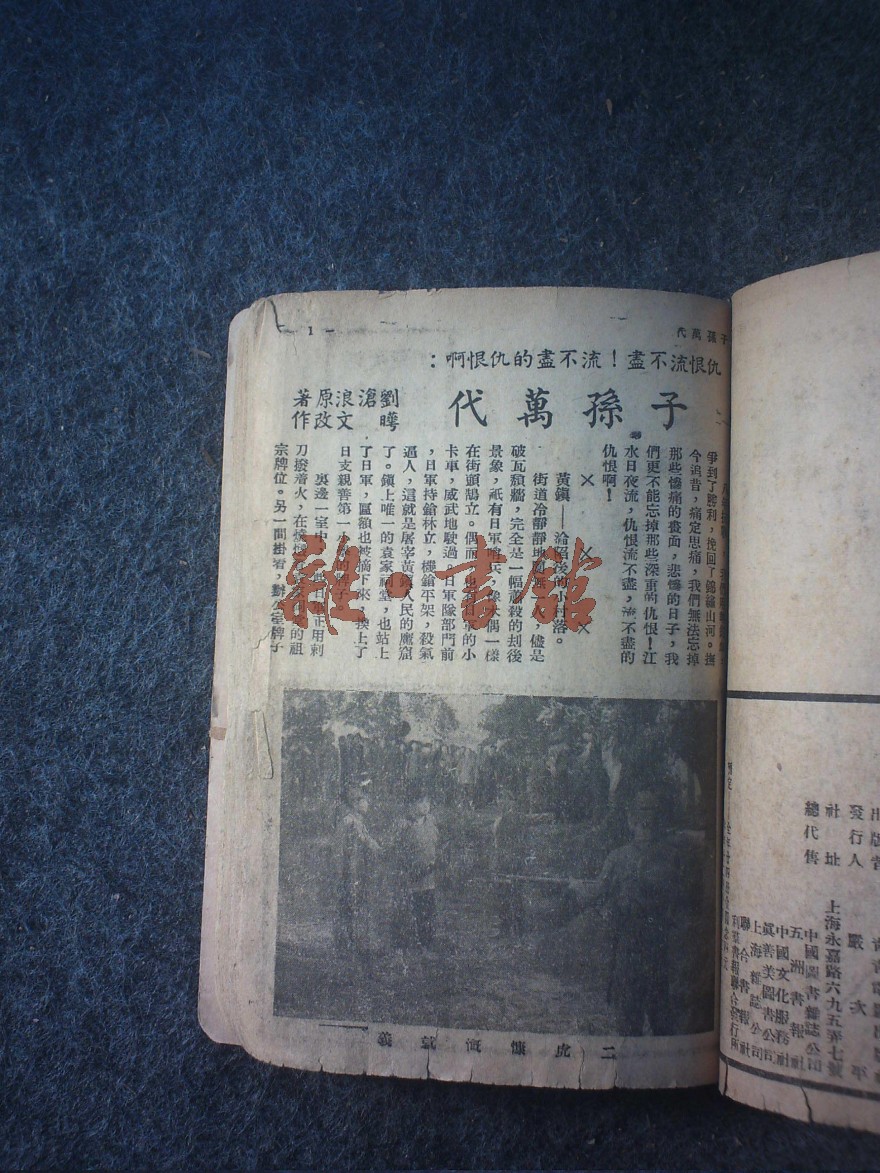 子孫萬代
— 1 —
仇恨流不盡！流不盡的仇恨啊：
子孫萬代
劉滄浪原著
曄文改作
爭到了勝利，挽回了錦繡山河。撫
今追昔，痛定思痛，我們無法忘掉
那些慘痛的喪面，悲慘的日子，我
們更不能忘掉那些深重的仇恨！江
水日夜流，仇恨流不盡，流不盡的
仇恨啊！
× × ×
黃鎮——淪陷後的小村落。
街道冷靜靜地闃無一人，儘是
破瓦頹牆，完全是一幅蕭殺的刦後
景象，祇有日軍哨兵，像木偶一樣
在街頭鵠立。偶而，也有日軍的小
卡車，威武地駛過。日軍隊部門前
，日軍持鎗林立，機鎗平架，殺氣
逼人，這就是屠宰黃鎮人民的鷹窟
了。鎮上唯一的袁家祠堂，也站上
了日軍，匾額也被摘下來，換上了
日支親善第一小學的牌子。
裏邊一室中，日軍正用刺
刀撥着火，在燒袁家的祖
宗牌位。另一間掛着，辦公室牌子
二虎慷慨就義
雜·書館
出版者
發行人 嚴次平
社址 上海永嘉路六九五弄七號
總代售
中國圖書雜誌公司
五洲書報社
中國文化服務社
眞善美圖書公司
上海雜誌公司
聯合書報社
利羣書報聯合發行所